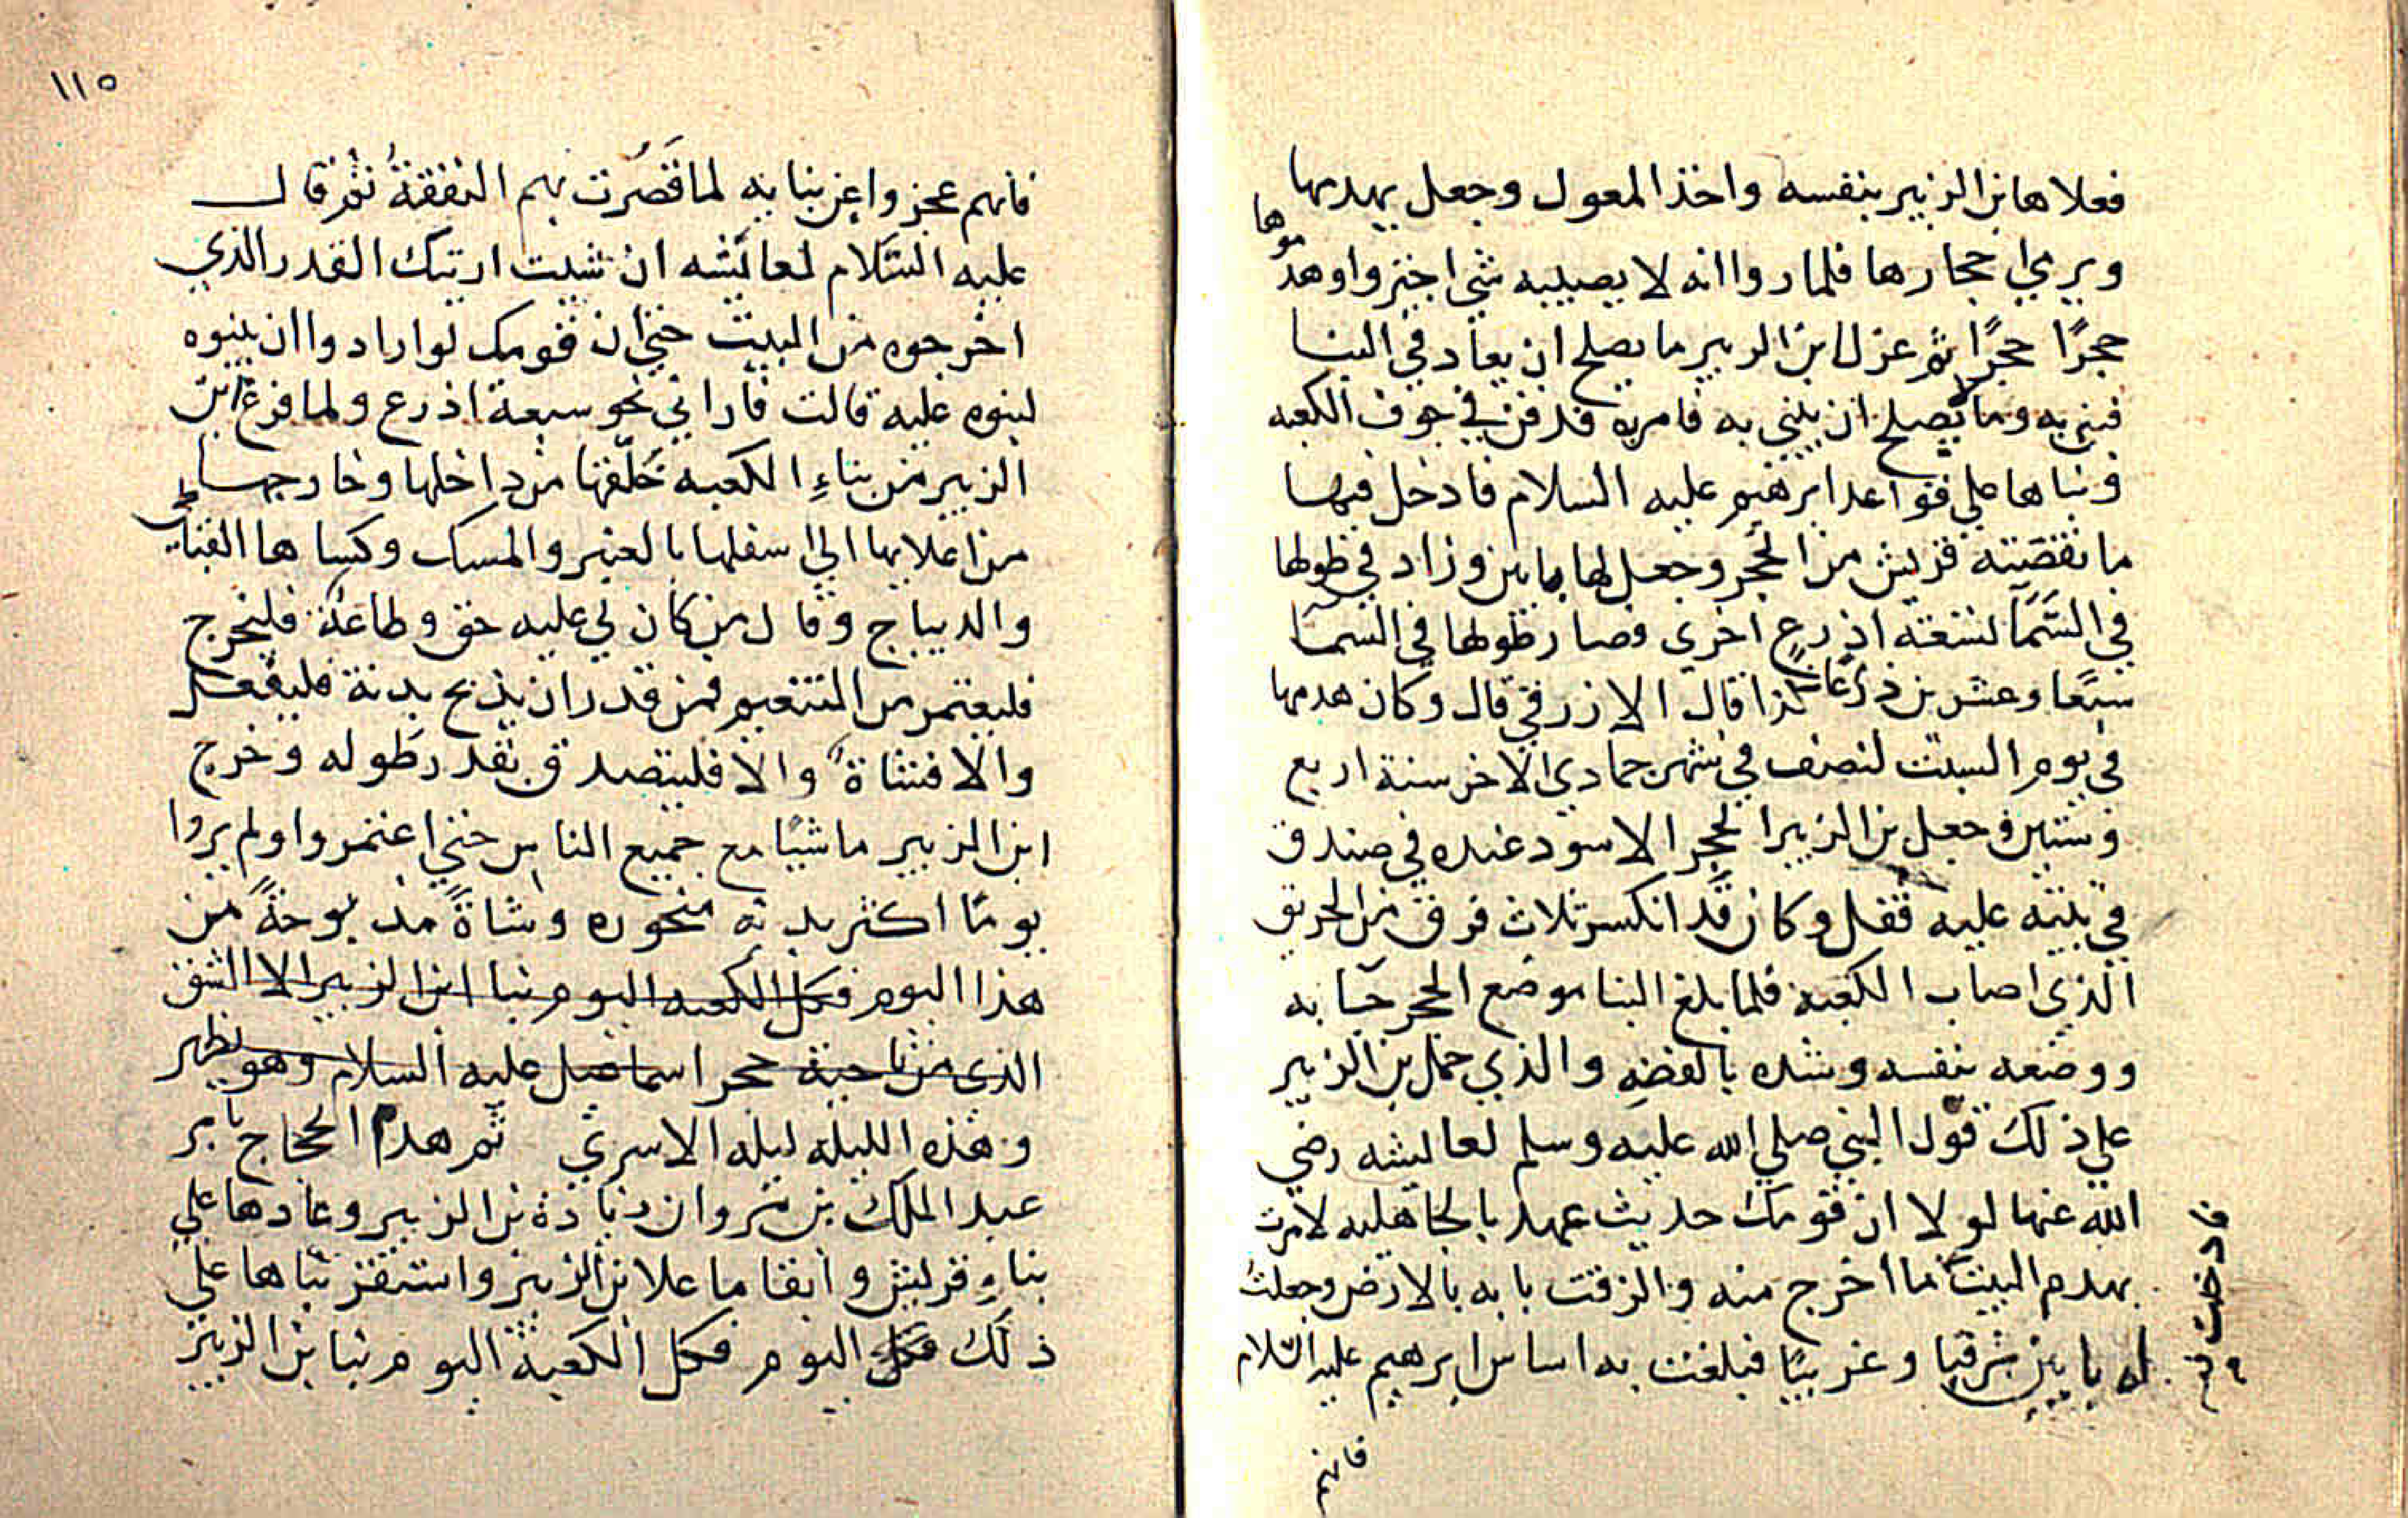 فعلاها بن الزبير بنفسه واخذ المعول وجعل يهدمها
ويرمي احجارها فلما رواانه لا يصيبه شي اجتروا وهدموها
حجرًا حجرًا ثم عزل ابن الزبير ما يصلح ان يعاد في البنا
فبني به وما لا يصلح ان يبني به فامر به فدفن في جوف الكعبه
وبناها علي قواعد ابرهيم عليه السلام فادخل فيها
ما نقصته قريش من الحجر وجعل لها بابين وزاد في طولها
في السمآ تسعة اذرع اخري وصار طولها في السمآ
سبعًا وعشرين ذراعًا كذا قال الازرقي قال وكان هدمها
في يوم السبت لنصف في شهر جمادي الاخر سنة اربع
وستين وجعل بن الزبير الحجر الاسود عنده في صندق
في بيته عليه قفل وكان قد انكسر ثلاث فرق من الحريق
الذي اصاب الكعبة فلما بلغ البنا موضع الحجر جآ به
ووضعه بنفسه وشده بالفضه والذي حمل بن الزبير
علي ذلك قول النبي صلي الله عليه وسلم لعايشه رضي
الله عنها لو لا ان قومك حديث عهد بالجاهليه لامرت
بهدم البيت ما أخرج منه والزقت بابه بالارض وجعلت
له بابين شرقيا وغربيًا فبلغت به اساس ابرهيم عليه السلام
فادخلت فيه
فانهم
١١٥
فانهم عجزوا عن بنايه لما قَصُرَت بهم النفقةُ ثم قال
عليه السَّلام لعائشه ان شيت اريتك القدر الذي
اخرجوه من البيت حتي ان قومك لو ارادوا ان يبنوه
لبنوه عليه قالت فاراني نحو سبعة اذرع ولما فرغ ابن
الزبير من بناءِ الكعبه خَلَّقها من داخلها وخارجها
من اعلاها الي اسفلها بالعنبر والمسك وكساها القباطي
والديباج وقال من كان لي عليه حق وطاعة فليخرج
فليعتمر من التنعيم فمن قدر ان يذبح بدنة فليفعل
والا فشاةً والا فليتصدق بقدر طوله وخرج
ابن الزبير ماشيًا مع جميع الناس حتي اعتمروا ولم يروا
يومًا اكثر بدنه منحوره وشاةً مذبوحةً من
هذا اليوم فكل الكعبه اليوم بنا ابن الزبير الا الشق
الذي من ناحية حجر اسماعيل عليه السلام وهو يظهر
وهذه الليله ليله الاسري ثم هدم الحجاج بامر
عبد الملك بن مروان زيادة بن الزبير وعادها علي
بناءِ قريش وابقا ما علا بن الزبير واستقر بناها علي
ذلك فكل اليوم فكل الكعبة اليوم بنا بن الزبير